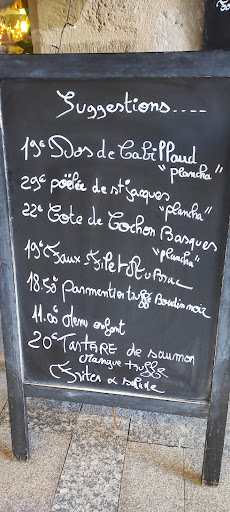 Suggestions....
19€ Dos de Cabillaud
"plancha"
29€ poêlée de st jacques
"plancha"
22€ Cote de Cochon Basques
"plancha"
19€ Faux Filet Aubrac
18.50 Parmentier truffé Boudin noir
11.00 Menu enfant
20€ TARTARE de saumon
Mangue truffé
Frites & salade